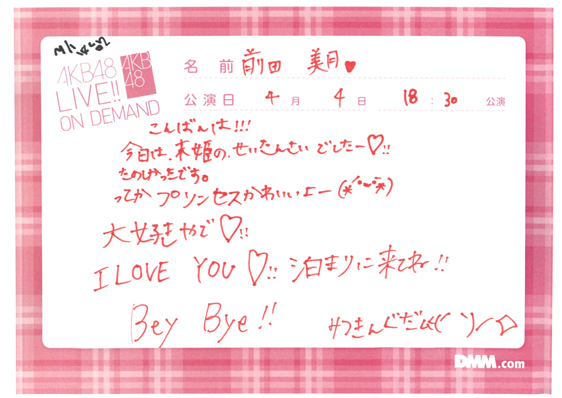 AKB48
LIVE!!
ON DEMAND
AKB
48
名前 前田 美月♥
公演日 4月 4日 18:30 公演
こんばんは!!!
今日は、未姫の、せいたんさいでしたー♡!!
たのしかったです。
ってか プリンセスかわいいよー
大好きやで♡!!
I LOVE YOU♡!! 泊まりに来てね!!
Bey Bye!!
DMM.com